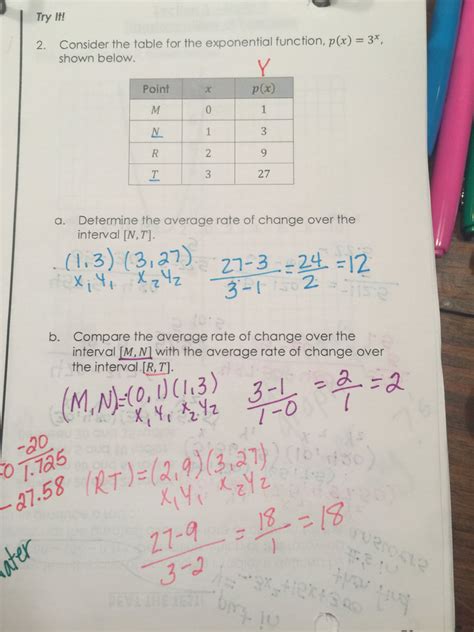 Try It!
2. Consider the table for the exponential function, p(x) = 3ˣ,
shown below.
Y
Point x p(x)
M 0 1
N 1 3
R 2 9
T 3 27
a. Determine the average rate of change over the
interval [N, T].
(1,3) (3,27) 27-3/3-1 = 24/2 = 12
x₁ y₁ x₂ y₂
b. Compare the average rate of change over the
interval [M, N] with the average rate of change over
the interval [R, T].
(M,N)=(0,1)(1,3) 3-1/1-0 = 2/1 = 2
x₁ y₁ x₂ y₂
-20
1.725
-27.58
(RT)=(2,9)(3,27)
x₁ y₁ x₂ y₂
27-9/3-2 = 18/1 = 18